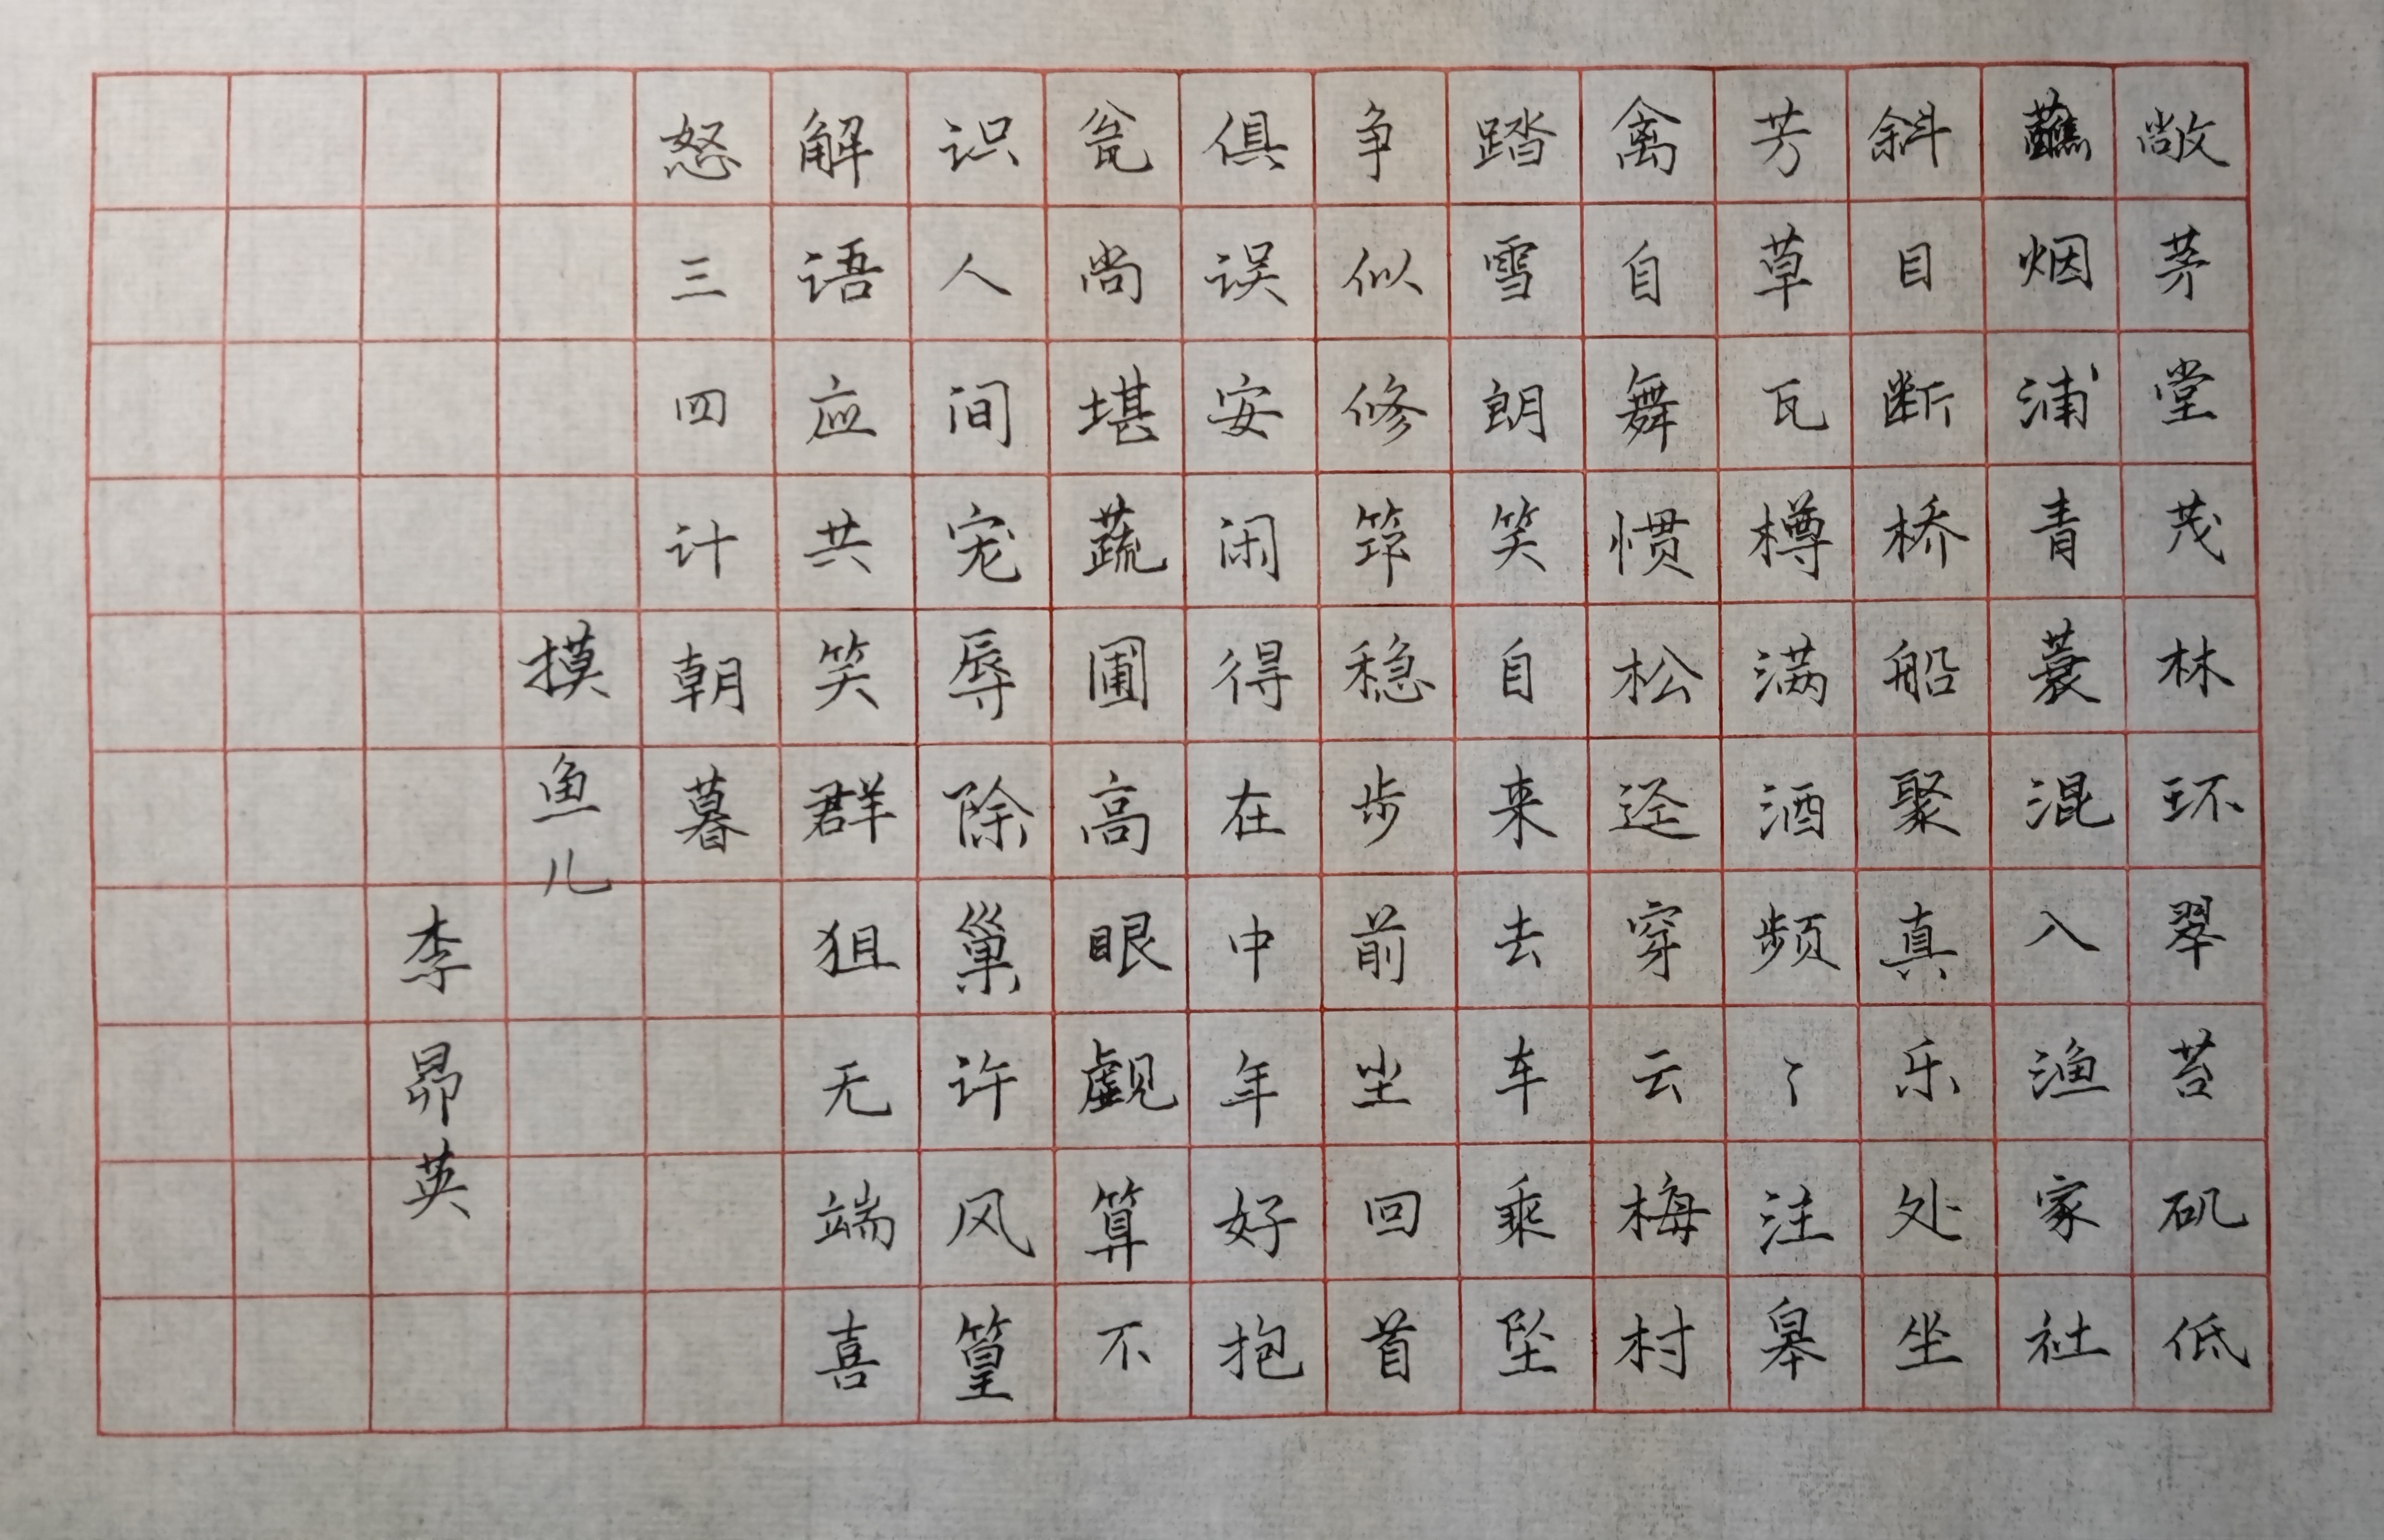 敞茅堂茂林环翠苔矶低
蘸烟浦青蓑混入渔家社
斜目断桥船聚真乐处坐
芳草瓦樽满酒频〻注皋
禽自舞惯松迳穿云梅村
踏雪朗笑自来去车乘坠
争似修筇稳步前尘回首
俱误安闲得在中年好抱
瓮尚堪蔬圃高眼觑算不
识人间宠辱除巢许风篁
解语应共笑群狙无端喜
怒三四计朝暮
摸鱼儿
李昴英